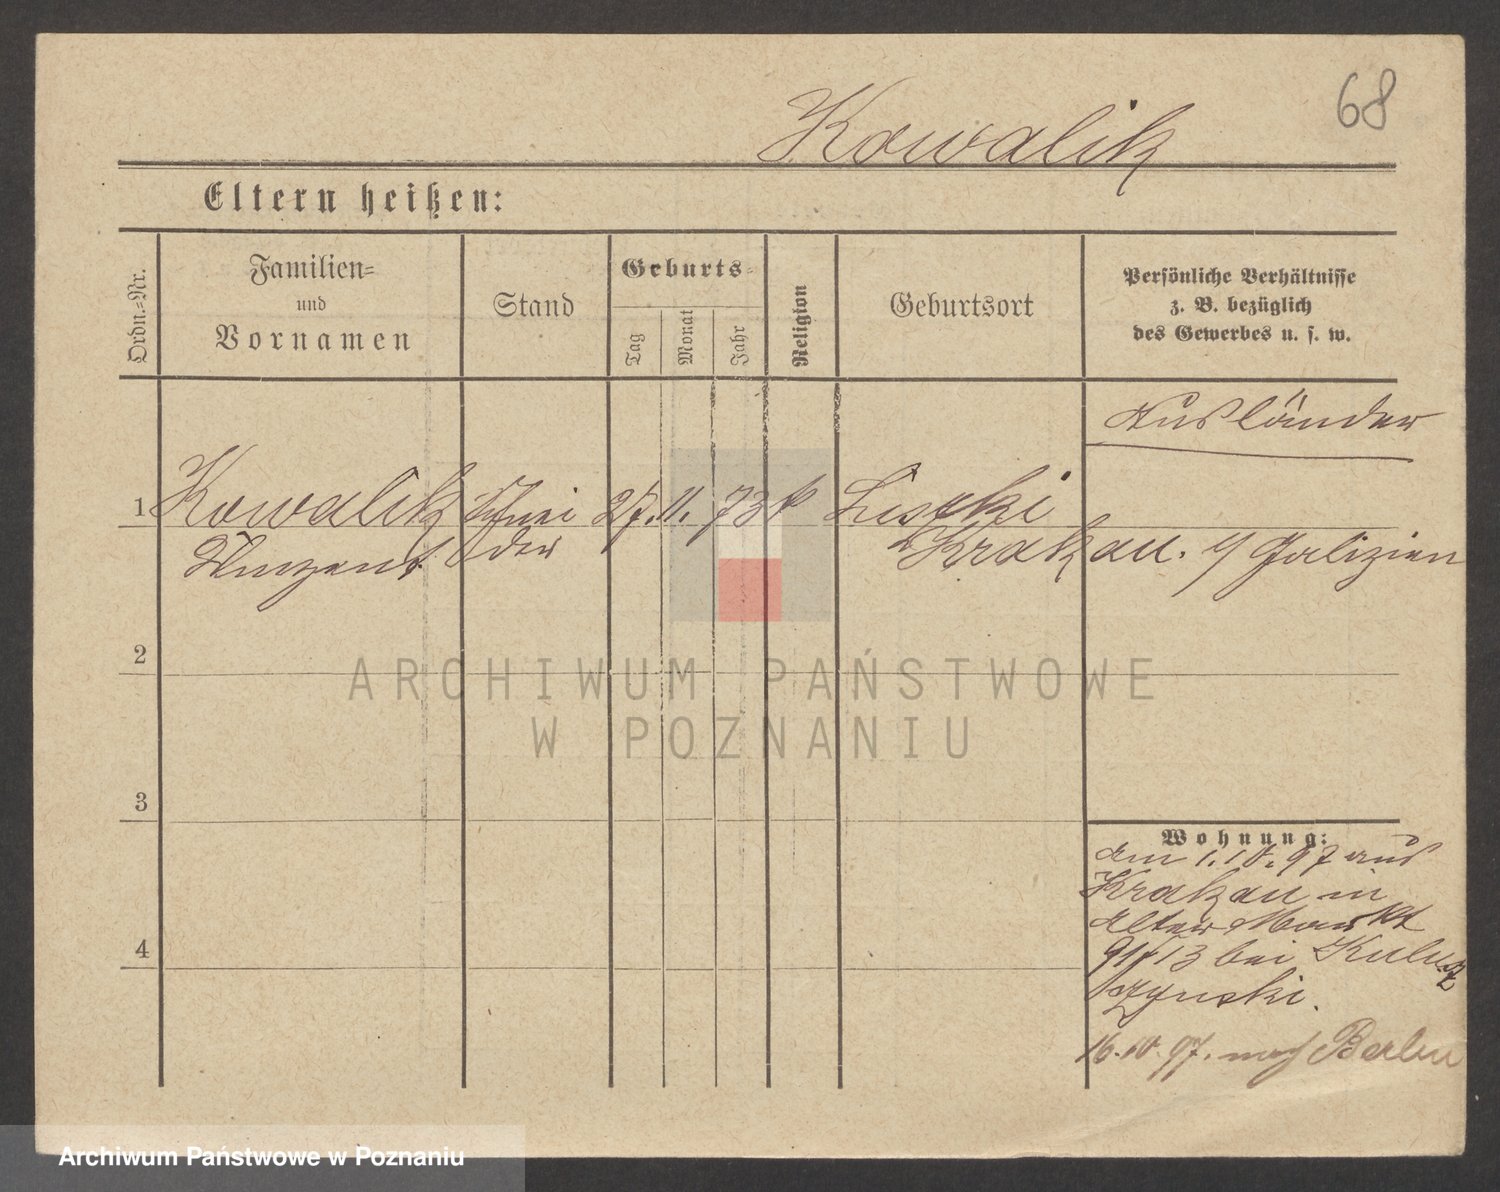 68
Kowalik
Eltern heißen:
Ordn.=Nr.
Familien=
und
Vornamen
Stand
Geburts=
Tag
Monat
Jahr
Religion
Geburtsort
Persönliche Verhältnisse
z. B. bezüglich
des Gewerbes u. s. w.
Ausländer
1 Kowalik Schnei 27. 11. 73 k Liszki
Vinzent der Krakau. Galizien
2
3
4
Wohnung:
am 1.10.97 aus
Krakau in
Alter Markt
91 13 bei
16.10.97. nach Berlin
ARCHIWUM PAŃSTWOWE
W POZNANIU
Archiwum Państwowe w Poznaniu